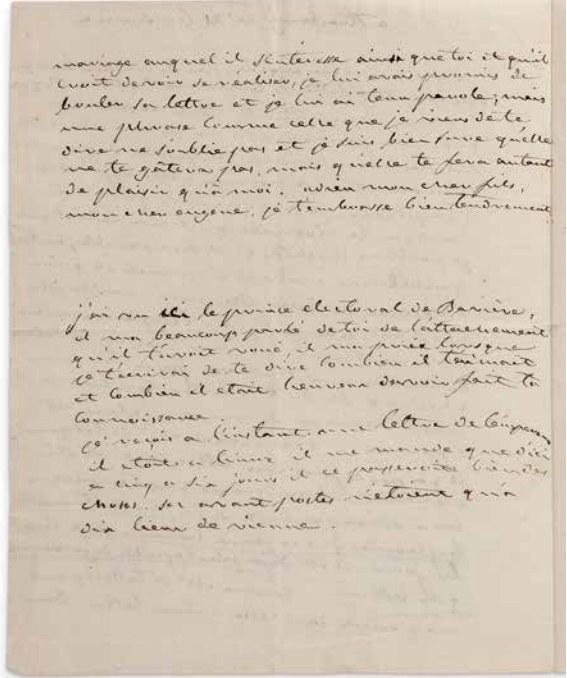 mariage auquel il s'interesse ainsi que toi et qu'il
croit devoir se réaliser, je lui avais promis de
bruler sa lettre et je lui ai tenu parole; mais
une phrase comme celle que je viens de te
dire ne s'oublie pas et je suis bien sure qu'elle
ne te gâtera pas, mais qu'elle te fera autant
de plaisir qu'a moi. adieu mon cher fils,
mon cher eugene, je t'embrasse bien tendrement
j'ai vu ici le prince electoral de Bavière,
il m'a beaucoup parlé de toi de l'attachement
qu'il t'avoit voué, il m'a priée lorsque
je t'écrirai de te dire combien il t'aimait
et combien il etait heureux d'avoir fait ta
connoissance.
je reçois a l'instant une lettre de l'empereur
il etoit a linz il me mande que d'ici
a cinq a six jours il se passeroit bien des
choses. ses avant postes n'etoient qu'a
dix lieux de vienne.